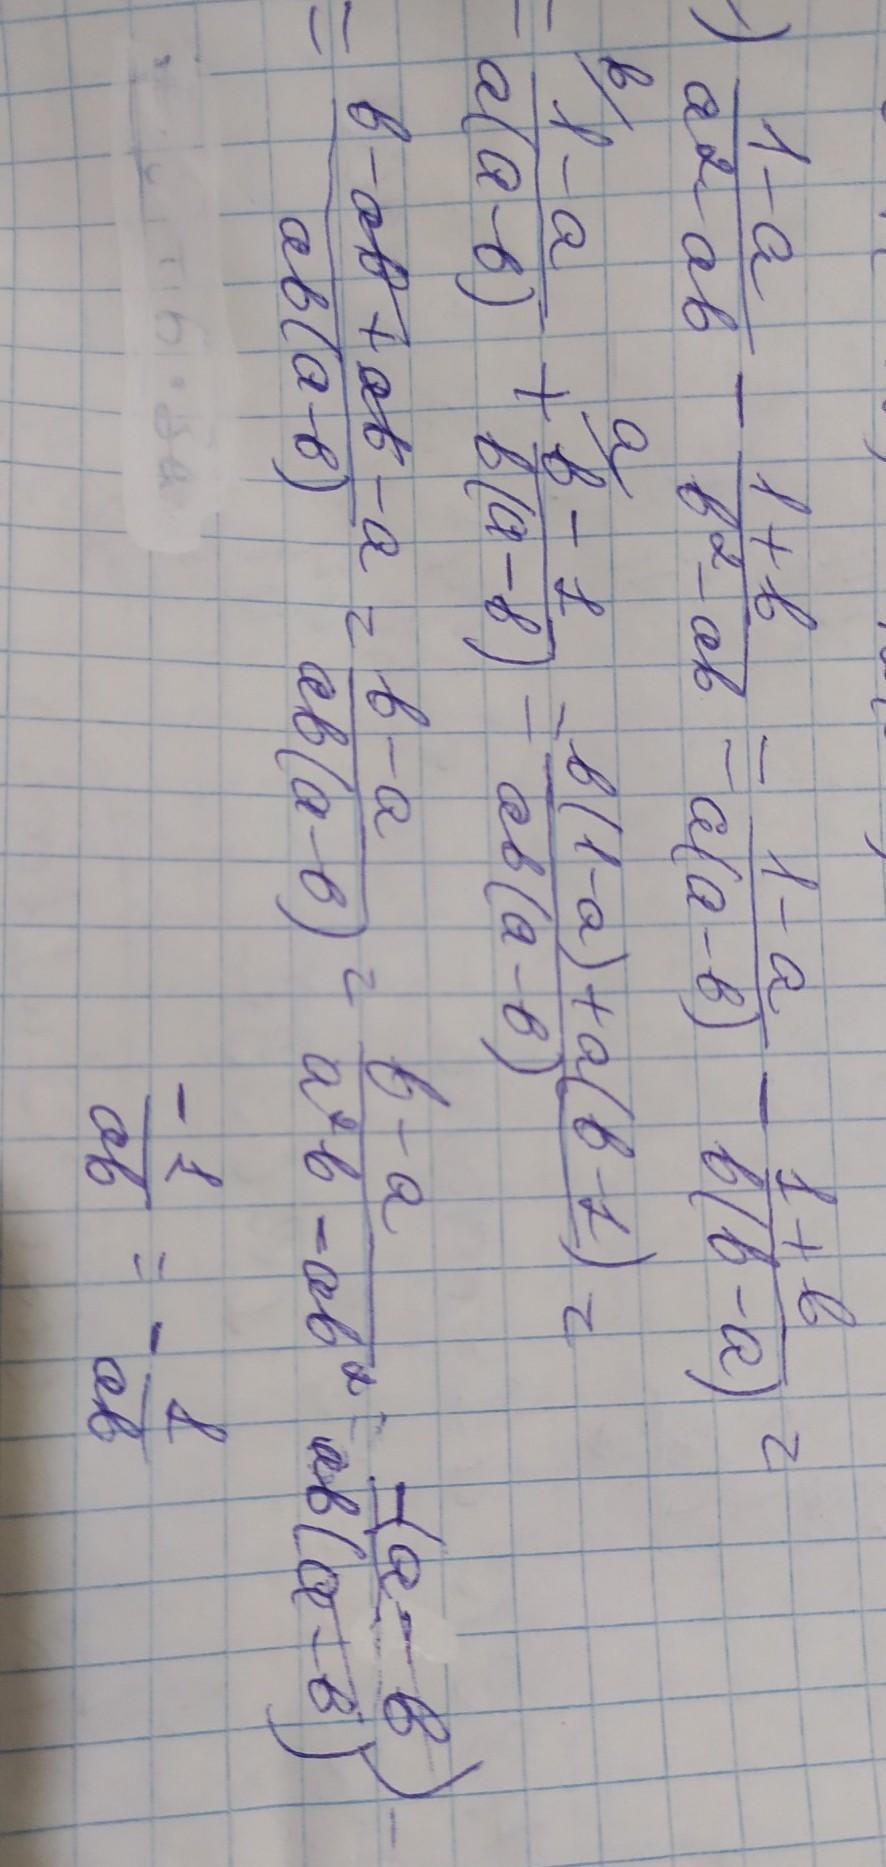 ) \frac{1-a}{a^2-ab} - \frac{1+b}{b^2-ab} = \frac{1-a}{a(a-b)} - \frac{1+b}{b(b-a)} =
= \frac{1-a}{a(a-b)}^{b/} + \frac{b-1}{b(a-b)}^{a/} = \frac{b(1-a)+a(b-1)}{ab(a-b)} =
= \frac{b-ab+ab-a}{ab(a-b)} = \frac{b-a}{ab(a-b)} = \frac{b-a}{a^2b-ab^2} = \frac{-(a-b)}{ab(a-b)} =
\frac{-1}{ab} = -\frac{1}{ab}